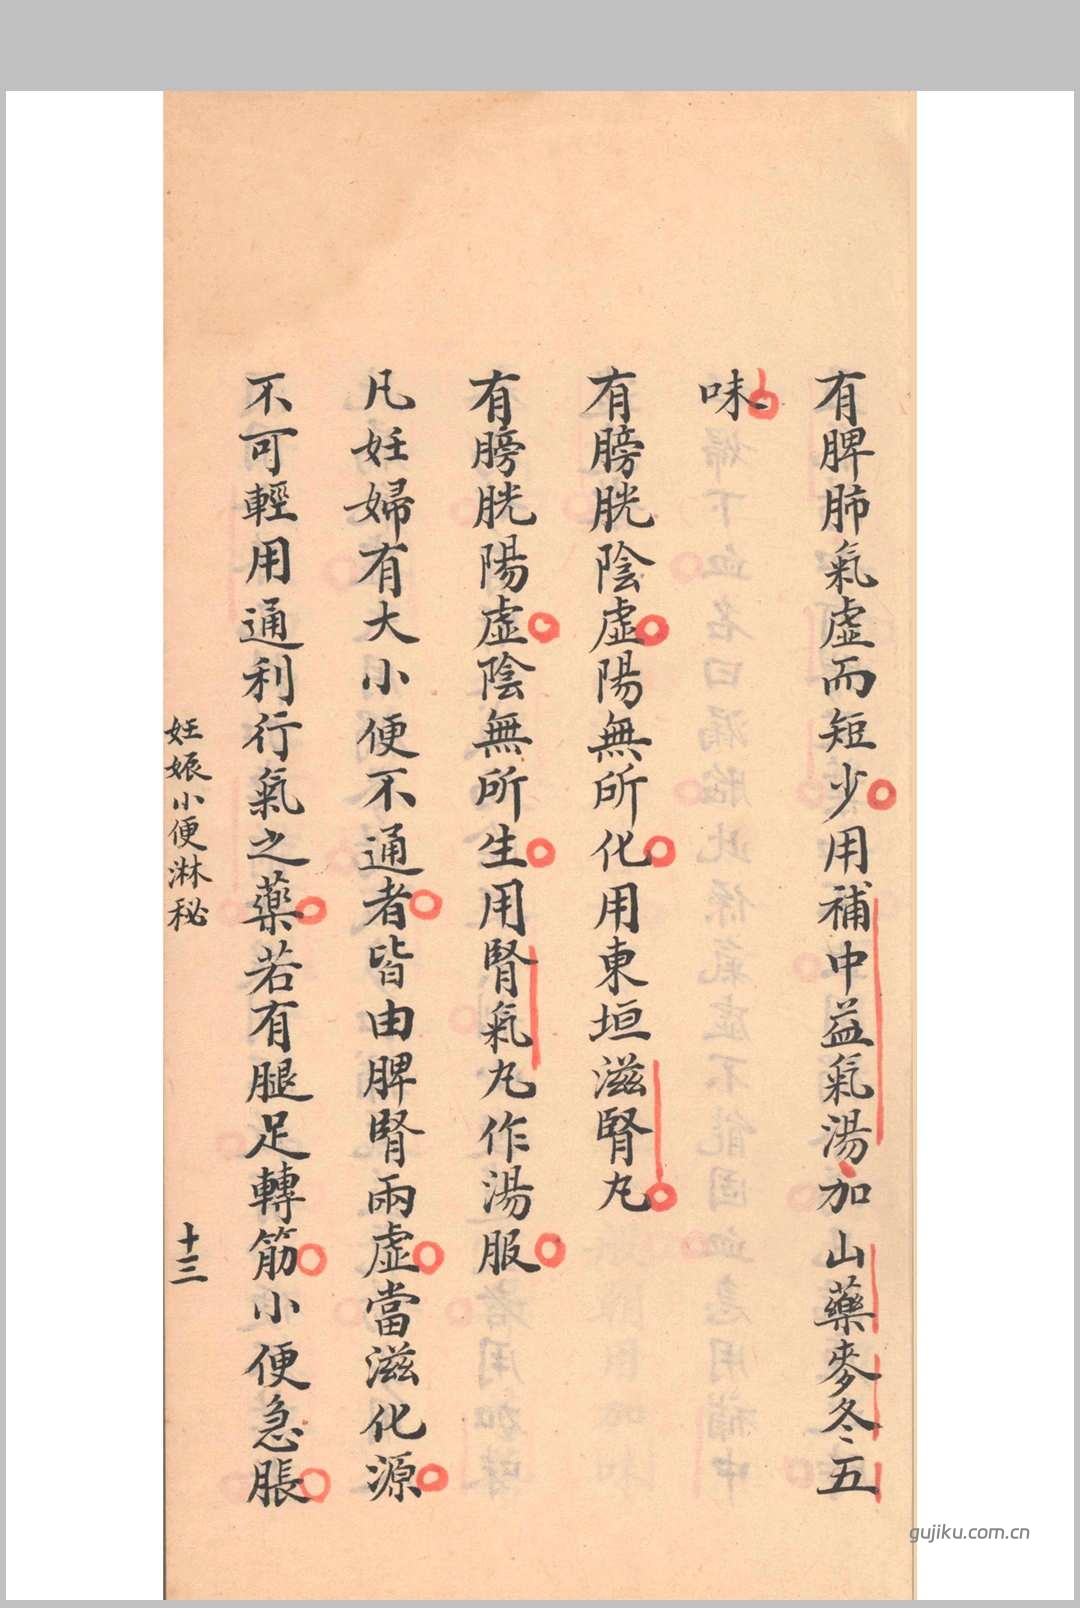 有脾肺氣虛而短少用補中益氣湯加山藥麥冬五
味
有膀胱陰虛陽無所化用東垣滋腎丸
有膀胱陽虛陰無所生用腎氣丸作湯服
凡妊婦有大小便不通者皆由脾腎兩虛當滋化源
不可輕用通利行氣之藥若有腿足轉筋小便急脹
妊娠小便淋秘
十三
gujiku.com.cn